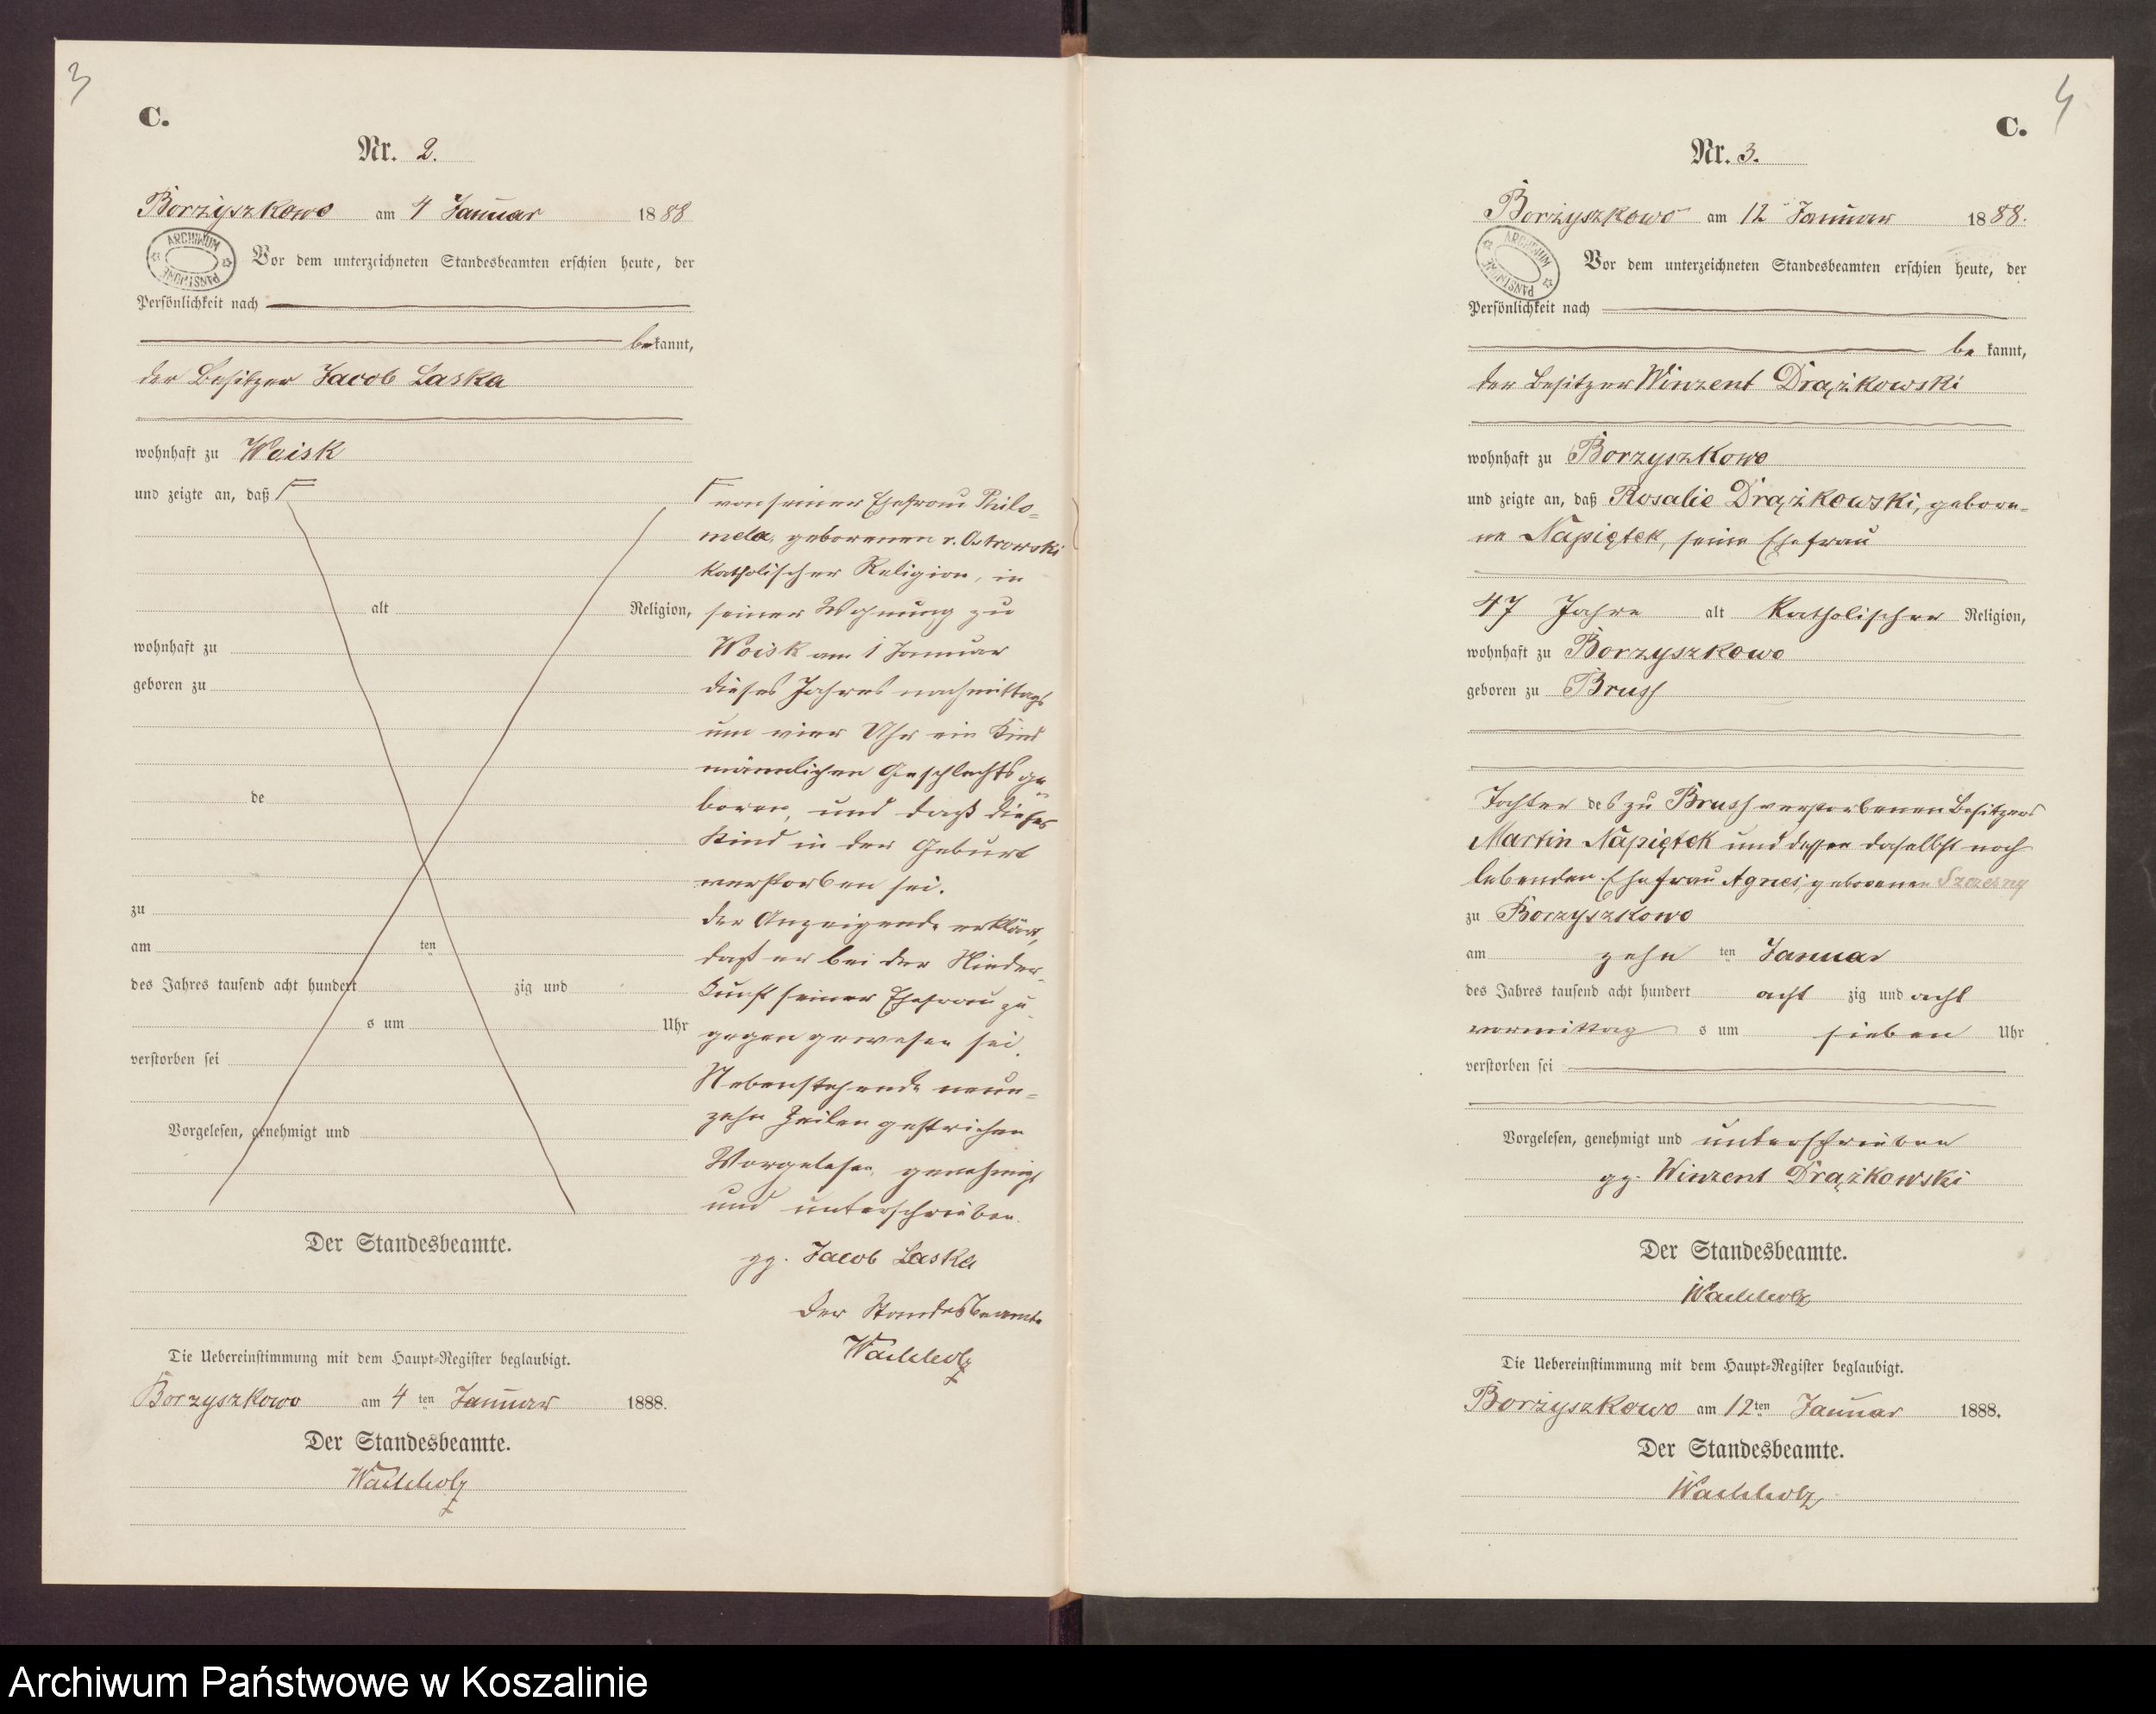 3
C.
Nr. 2.
Borzyszkowo am 4 Januar 1888
ARCHIWUM PAŃSTWOWE
Vor dem unterzeichneten Standesbeamten erschien heute, der
Persönlichkeit nach
bekannt,
der Besitzer Jacob Laska
wohnhaft zu Woisk
und zeigte an, daß
alt Religion,
wohnhaft zu
geboren zu
de
zu
am ten
des Jahres tausend acht hundert zig und
s um Uhr
verstorben sei
Vorgelesen, genehmigt und
Der Standesbeamte.
Die Uebereinstimmung mit dem Haupt-Register beglaubigt.
Borzyszkowo am 4 ten Januar 1888.
Der Standesbeamte.
Wachholz
von seiner Ehefrau Philo-
mela, geborenen v. Ostrowski
katholischer Religion, in
seiner Wohnung zu
Woisk am 1 Januar
dieses Jahres nachmittags
um vier Uhr ein Kind
männlichen Geschlechts ge-
boren, und daß dieses
Kind in der Geburt
verstorben sei.
Der Anzeigende erklärt,
daß er bei der Nieder-
kunft seiner Ehefrau zu-
gegen gewesen sei.
Nebenstehende neun-
zehn Zeilen gestrichen
Vorgelesen, genehmigt
und unterschrieben.
gz. Jacob Laska
Der Standesbeamte
Wachholz
4
C.
Nr. 3.
Borzyszkowo am 12 Januar 1888.
ARCHIWUM PAŃSTWOWE
Vor dem unterzeichneten Standesbeamten erschien heute, der
Persönlichkeit nach
be kannt,
der Besitzer Winzent Drążkowski
wohnhaft zu Borzyszkowo
und zeigte an, daß Rosalie Drążkowski, gebore-
ne Napiętek, seine Ehefrau
47 Jahre alt katholischer Religion,
wohnhaft zu Borzyszkowo
geboren zu Bruss
Tochter des zu Bruss verstorbenen Besitzers
Martin Napiętek und dessen daselbst noch
lebenden Ehefrau Agnes, geborenen Szczesny
zu Borzyszkowo
am zehn ten Januar
des Jahres tausend acht hundert acht zig und acht
vormittag s um sieben Uhr
verstorben sei
Vorgelesen, genehmigt und unterschrieben
gz. Winzent Drążkowski
Der Standesbeamte.
Wachholz
Die Uebereinstimmung mit dem Haupt-Register beglaubigt.
Borzyszkowo am 12ten Januar 1888.
Der Standesbeamte.
Wachholz
Archiwum Państwowe w Koszalinie